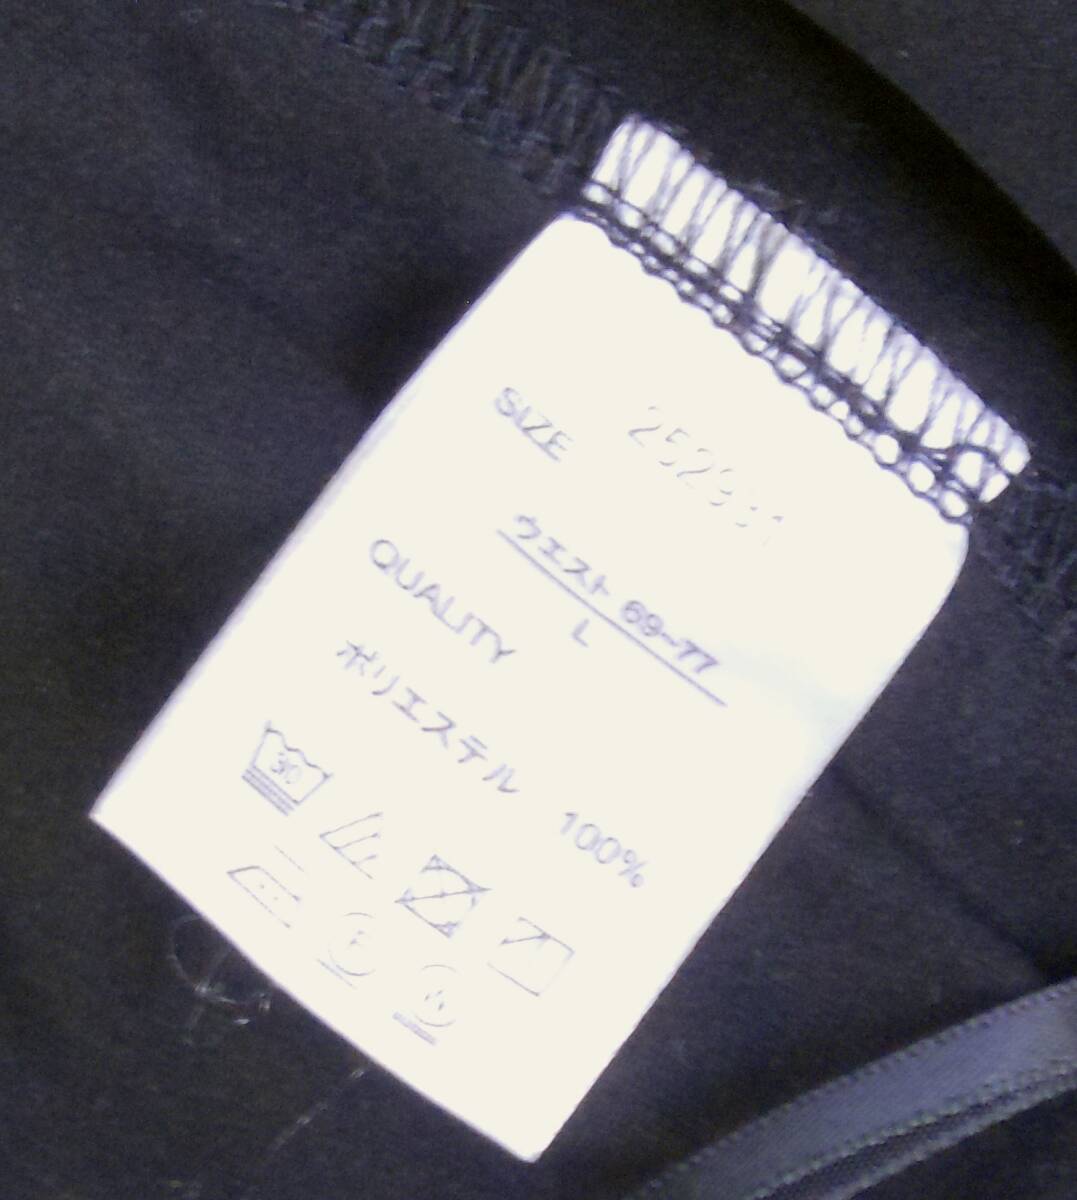 SIZE
ウエスト 69~77
L
QUALITY
ポリエステル 100%
30
P
W